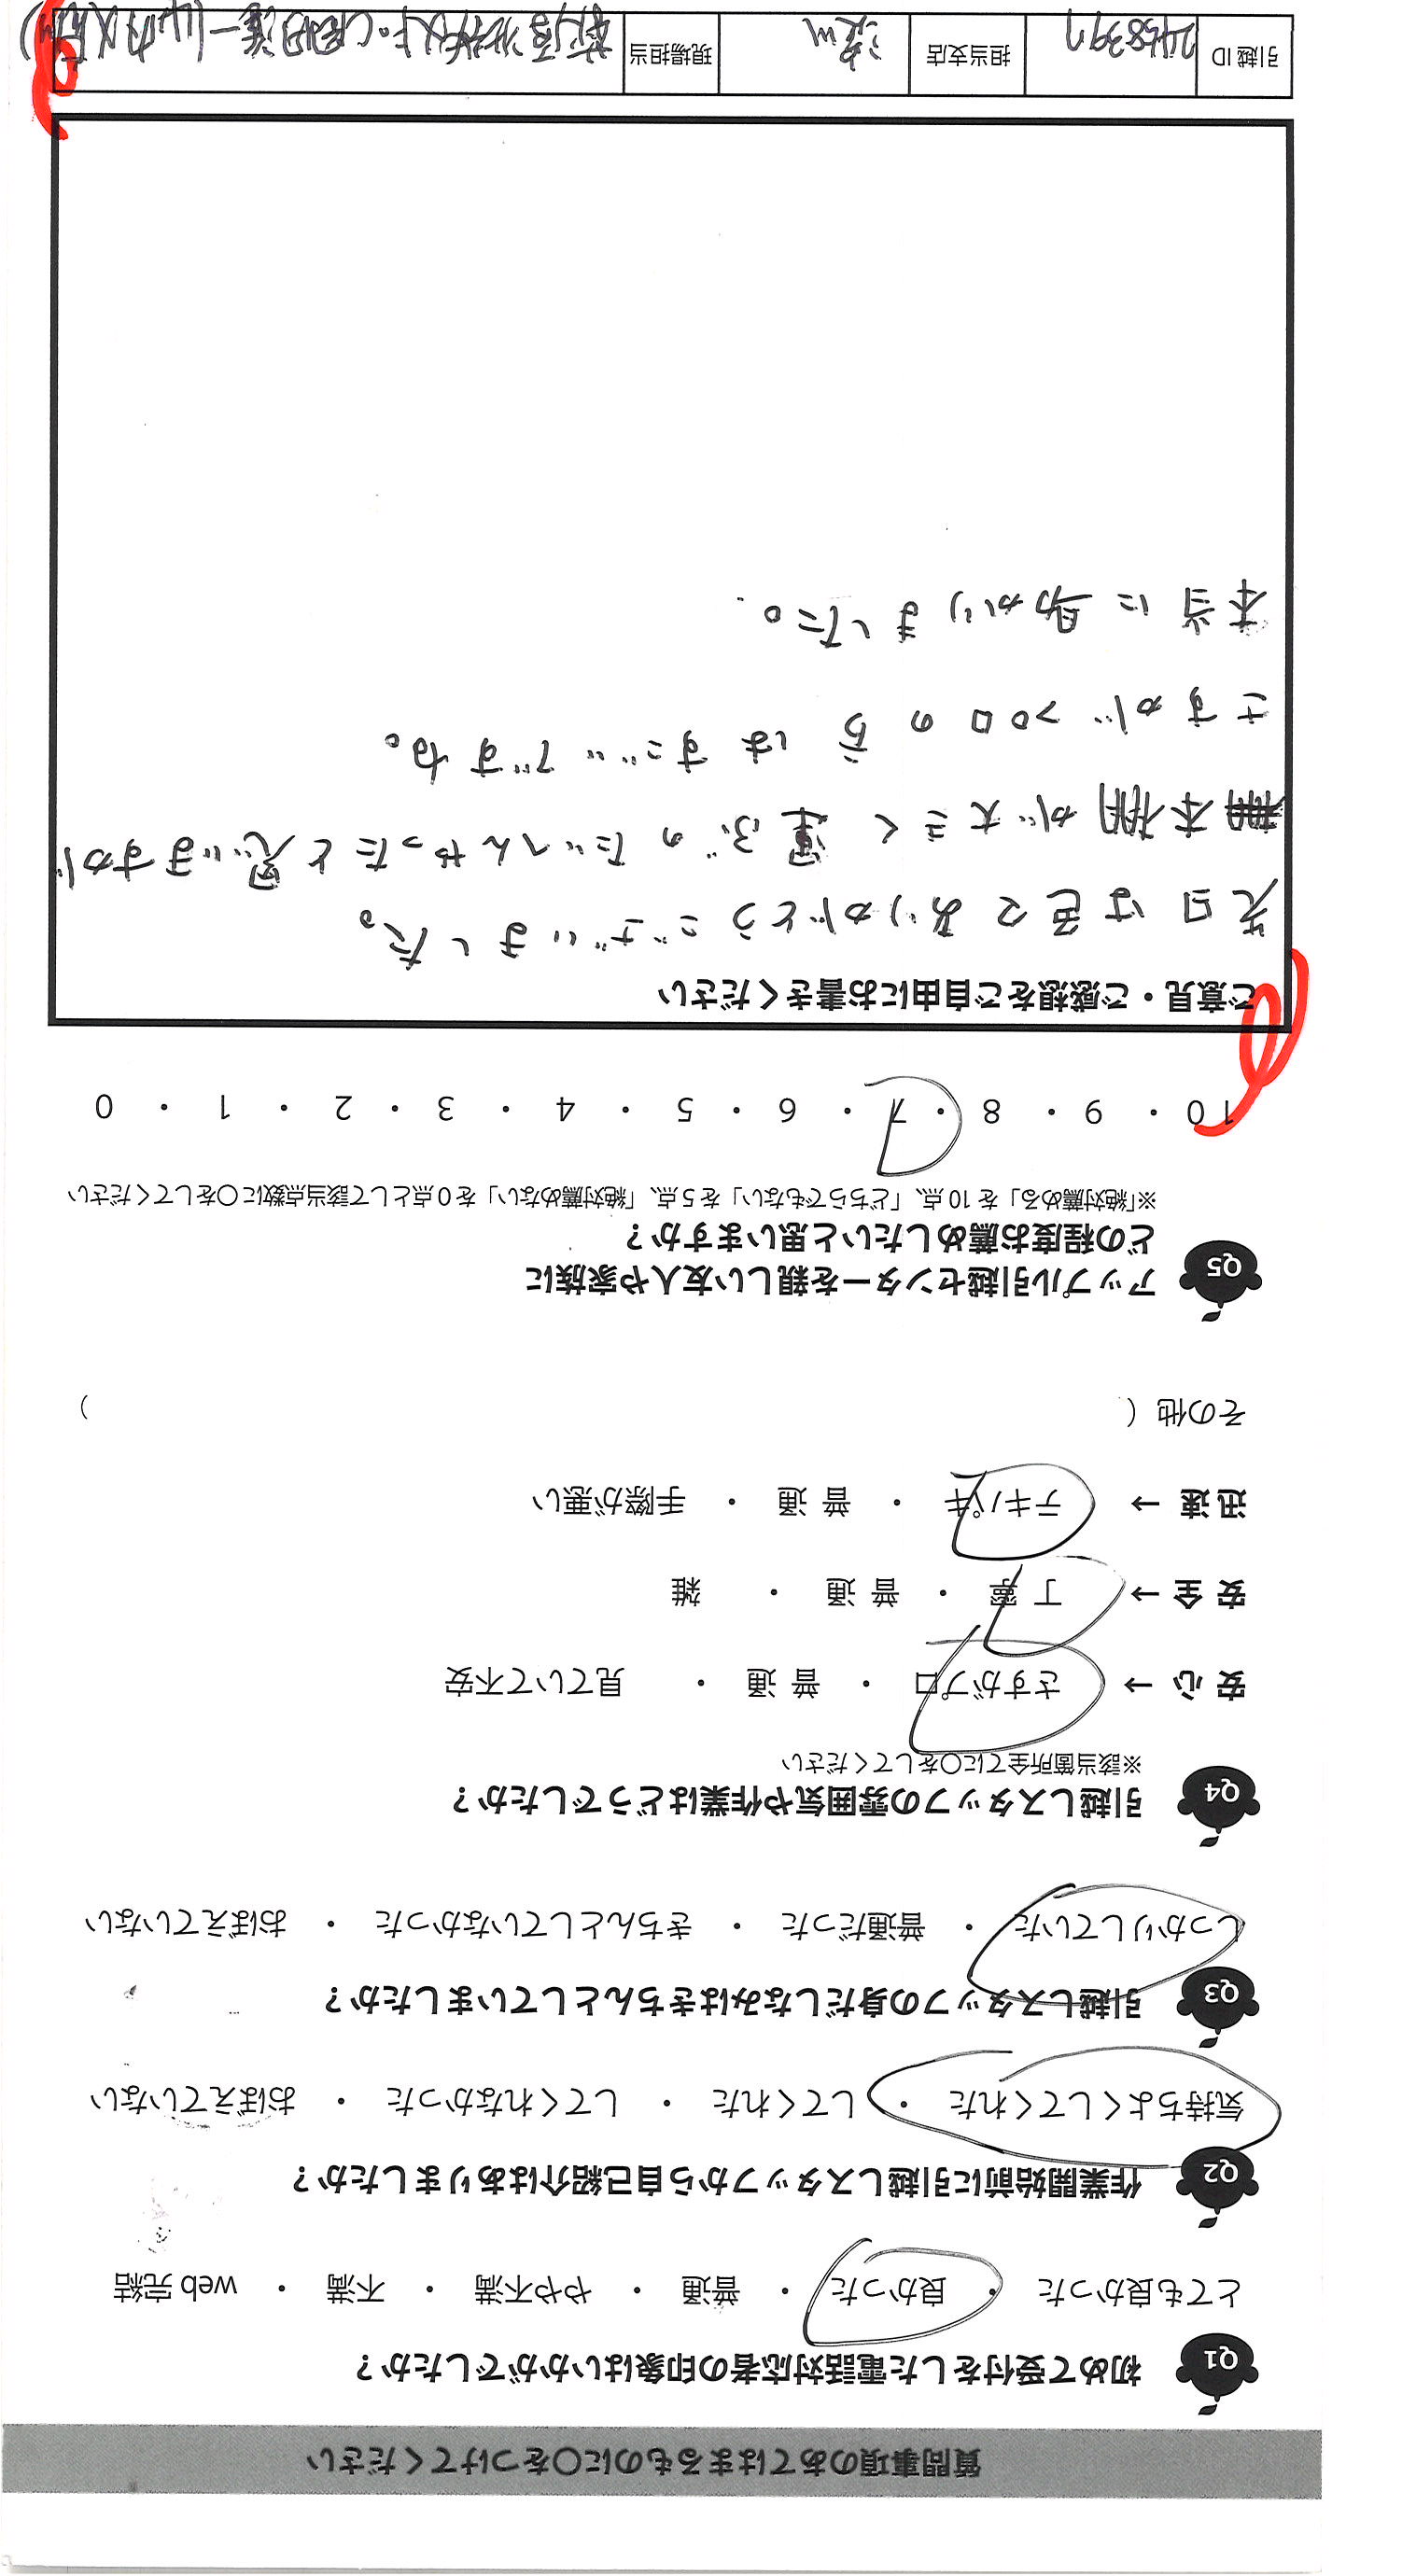 質問事項のあてはまるものに○をつけてください
Q1 初めて受付をした電話対応者の印象はいかがでしたか？
とても良かった ・ 良かった ・ 普通 ・ やや不満 ・ 不満 ・ web完結
Q2 作業開始前に引越しスタッフから自己紹介はありましたか？
気持ちよくしてくれた ・ してくれた ・ してくれなかった ・ おぼえていない
Q3 引越しスタッフの身だしなみはきちんとしていましたか？
しっかりしていた ・ 普通だった ・ きちんとしていなかった ・ おぼえていない
Q4 引越しスタッフの雰囲気や作業はどうでしたか？
※該当箇所全てに○をしてください
安心 → さすがプロ ・ 普通 ・ 見ていて不安
安全 → 丁寧 ・ 普通 ・ 雑
迅速 → テキパキ ・ 普通 ・ 手際が悪い
その他（ ）
Q5 アップル引越センターを親しい友人や家族に
どの程度お薦めしたいと思いますか？
※「絶対薦める」を10点、「どちらでもない」を5点、「絶対薦めない」を0点として該当点数に○をしてください
10 ・ 9 ・ 8 ・ 7 ・ 6 ・ 5 ・ 4 ・ 3 ・ 2 ・ 1 ・ 0
ご意見・ご感想をご自由にお書きください
先日は色々ありがとうございました。
本棚が大きく運ぶのたいへんやったと思いますが
さすがプロの方はすごいですね。
本当に助かりました。
引越ID 2458397 担当支店 現場担当